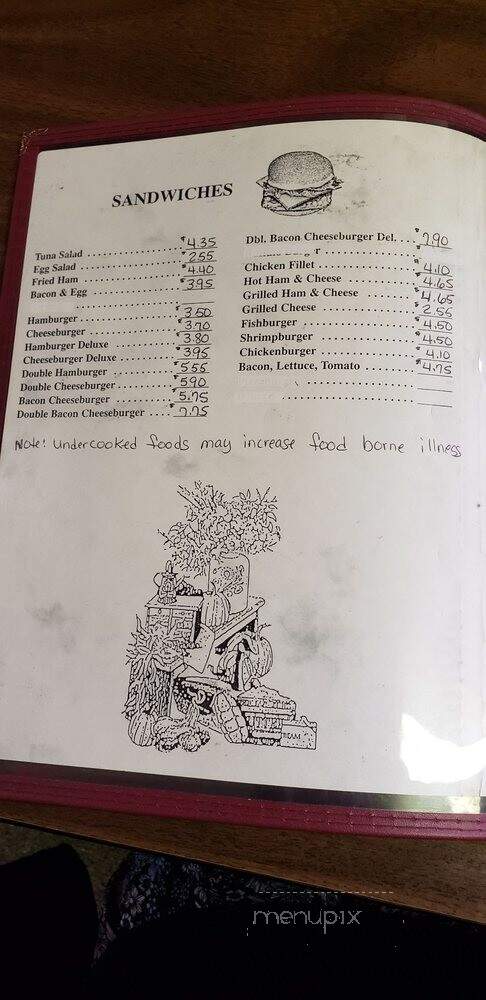 SANDWICHES
Tuna Salad ........ $4.35
Egg Salad ........ $2.55
Fried Ham ........ $4.40
Bacon & Egg ........ $3.95
Hamburger ........ $3.50
Cheeseburger ........ $3.70
Hamburger Deluxe ........ $3.80
Cheeseburger Deluxe ........ $3.95
Double Hamburger ........ $5.55
Double Cheeseburger ........ $5.90
Bacon Cheeseburger ........ $5.75
Double Bacon Cheeseburger .... $7.75
Dbl. Bacon Cheeseburger Del. ... $7.90
Chicken Fillet ........ $4.10
Hot Ham & Cheese ........ $4.65
Grilled Ham & Cheese ........ $4.65
Grilled Cheese ........ $2.55
Fishburger ........ $4.50
Shrimpburger ........ $4.50
Chickenburger ........ $4.10
Bacon, Lettuce, Tomato ........ $4.75
Note! Undercooked foods may increase food borne illness
menupix